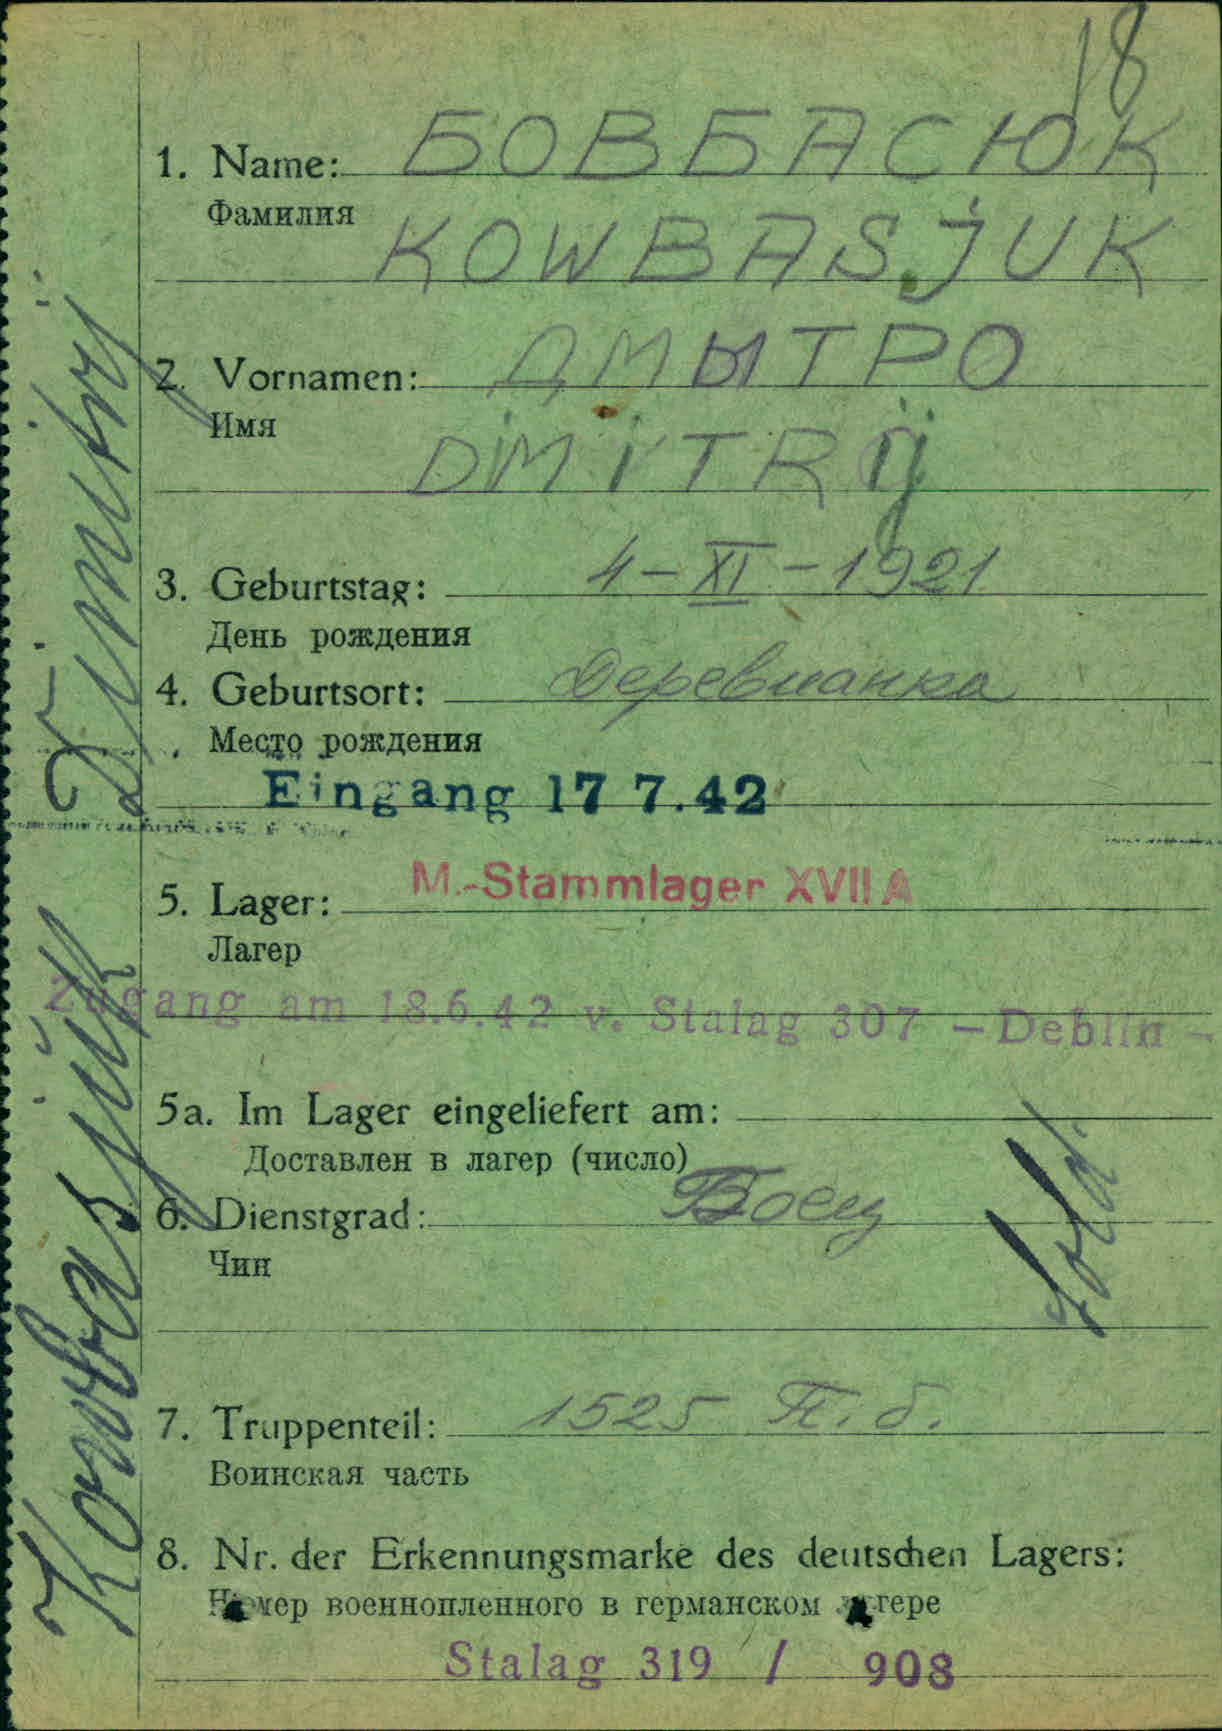 18
1. Name: БОВБАСЮК
Фамилия
KOWBASJUK
2. Vornamen: ДМЫТРО
Имя
DMITRIJ
3. Geburtstag: 4-XI-1921
День рождения
4. Geburtsort: Деревианка
Место рождения
Eingang 17 7.42
5. Lager: M.-Stammlager XVII A
Лагер
Zugang am 18.6.42 v. Stalag 307 - Deblin -
5a. Im Lager eingeliefert am:
Доставлен в лагер (число)
6. Dienstgrad: Боец
Чин
Sold.
7. Truppenteil: 1525 П. б.
Воинская часть
8. Nr. der Erkennungsmarke des deutschen Lagers:
Номер военнопленного в германском лагере
Stalag 319 / 908
Kowbasjŭk Dimitri